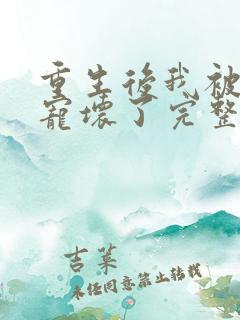 重生後我被
寵壞了完整
吉萊
未任同意禁止轉載